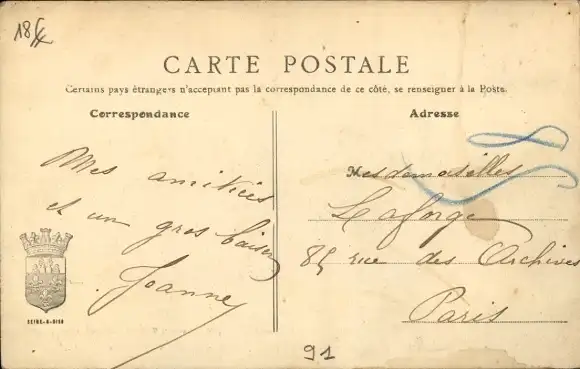 CARTE POSTALE
Certains pays étrangers n'acceptant pas la correspondance de ce côté, se renseigner à la Poste.
Correspondance
Mes amitiés
et un gros baiser
Jeanne
Adresse
Mesdemoiselles
Laforge
85 rue des Archives
Paris
91